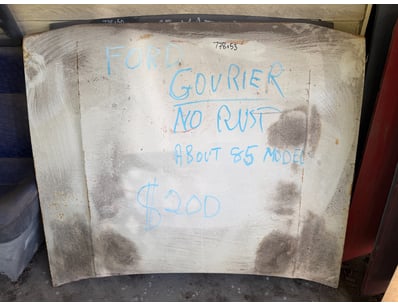 778x53
FORD
GOURIER
NO RUST
ABOUT 85 MODEL
$200